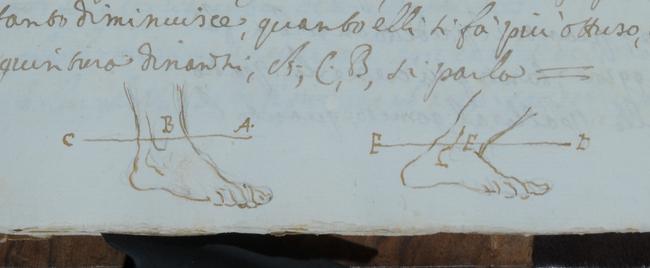 tanto diminuisce, quanto elli si fà più ottuso,
dinanzhi, A, C, B, si parla =
C B A
E C E D